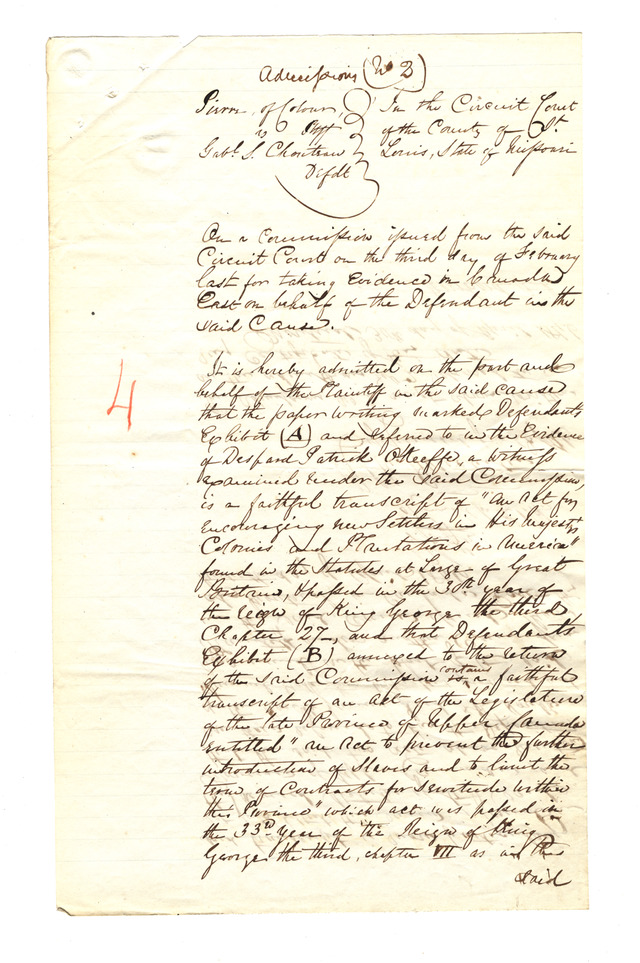 Admissions (No 2)
Pierre, of Colour, In the Circuit Court
vs Plff of the County of St.
Gabl. S. Chouteau Louis, State of Missouri
Defdt
On a Commission issued from the said
Circuit Court on the third day of February
last for taking Evidence in Canada
East on behalf of the Defendant in the
said Cause.
4
It is hereby admitted on the part and
behalf of the Plaintiff in the said cause
that the paper writing marked Defendants
Exhibit (A) and referred to in the Evidence
of Despard Patrick O'Keeffe, a witness
examined under the said Commission
is a faithful transcript of "An Act for
encouraging new Settlers in His Majesty's
Colonies and Plantations in America"
found in the Statutes at Large of Great
Britain, & passed in the 30th year of
the reign of King George the third,
Chapter 27, and that Defendants
Exhibit (B) annexed to the return
of the said Commission contains a faithful
transcript of an act of the Legislature
of the late Province of Upper Canada
entitled "An Act to prevent the further
introduction of Slaves and to limit the
term of Contracts for servitude within
this Province" which act was passed in
the 33rd year of the Reign of King
George the third, chapter VII as in the
said